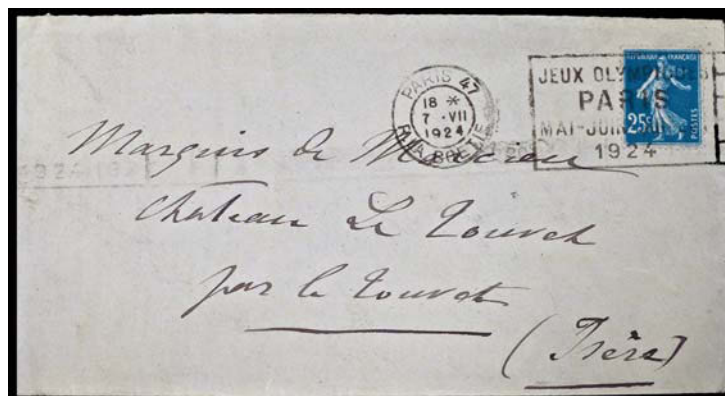 PARIS 47
18 *
7 - VII
1924
R. LA BOETIE
JEUX OLYMPIQUES
PARIS
MAI-JUIN-JUILLET
1924
REPUBLIQUE FRANÇAISE
25c
POSTES
Marquis de
château Le Touvet
par le Touvet
(Isère)